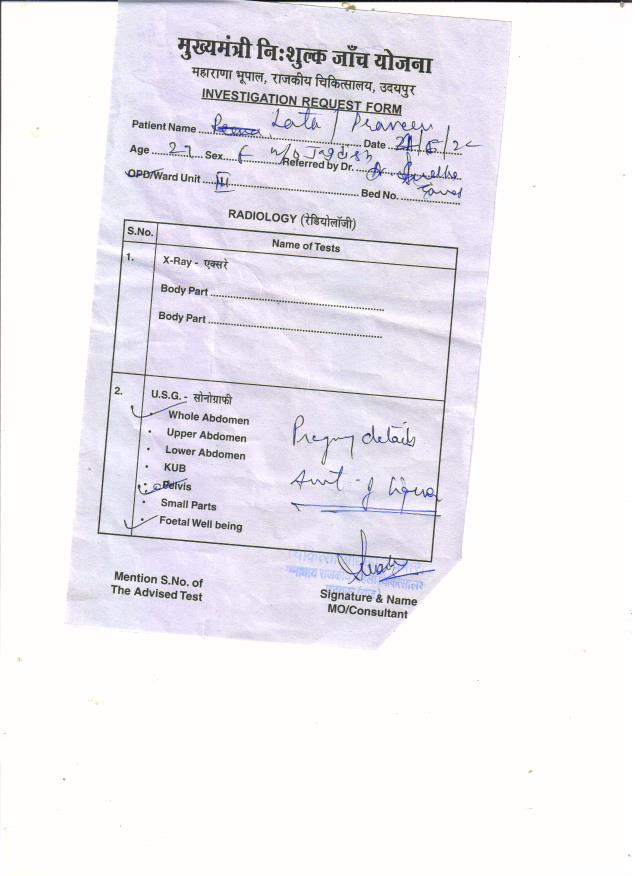 मुख्यमंत्री नि:शुल्क जाँच योजना
महाराणा भूपाल, राजकीय चिकित्सालय, उदयपुर
INVESTIGATION REQUEST FORM
Patient Name Lata / Praveen
Date
Age 27 Sex F w/o Jagdish Referred by Dr.
OPD/Ward Unit III Bed No.
RADIOLOGY (रेडियोलॉजी)
S.No. Name of Tests
1. X-Ray - एक्सरे
Body Part
Body Part
2. U.S.G. - सोनोग्राफी
• Whole Abdomen
• Upper Abdomen
• Lower Abdomen
• KUB
• Pelvis
• Small Parts
• Foetal Well being
details
Mention S.No. of
The Advised Test
Signature & Name
MO/Consultant